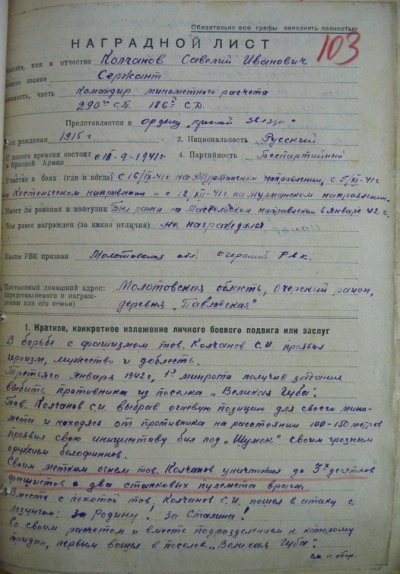 Обязательно все графы заполнять полностью
НАГРАДНОЙ ЛИСТ
103
имя и отчество Колчанов Савелий Иванович
звание Сержант
часть Командир минометного расчета
290 СП. 186 С.Д.
Представляется к ордену „Красной Звезды“
Год рождения 1915 г 2. Национальность Русский
С какого времени состоит в Красной Армии с 18-9-1941 г. 4. Партийность Беспартийный
Участие в боях (где и когда) с 16/IX-41 г на направлении, с 5/XI-41 г
на Кестеньгском направлении и с 12/XII-41 г на Мурманском направлении.
Имеет ли ранения и контузии Был ранен на Масельском направлении в январе 42 г.
Чем ранее награжден (за какие отличия) не награждался
Каким РВК призван Молотовская обл. Очерский Рвк.
Постоянный домашний адрес: Молотовская область, Очерский район,
(представляемого к награждению или его семьи) деревня „Павловская“
1. Краткое, конкретное изложение личного боевого подвига или заслуг
В борьбе с фашизмом тов. Колчанов С.И. проявил
героизм, мужество и доблесть.
Третьего января 1942 г, 1я минрота получив задание
выбить противника из поселка „Великая Губа“.
Тов. Колчанов С.И. выбрав огневую позицию для своего мино-
мета и находясь от противника на расстоянии 100-150 метров
проявил свою инициативу бил под „Шумок“ своим грозным
оружием белофиннов.
Своим метким огнем тов. Колчанов уничтожил до 3х десятков
фашистов и два станковых пулемета врага.
Вместе с пехотой тов. Колчанов С.И. пошел в атаку с
лозунгом: За Родину! За Сталина!
Со своим расчетом и вместе подразделением к которому
придан, первым вошел в поселок „Великая Губа“.
см. н. обор.